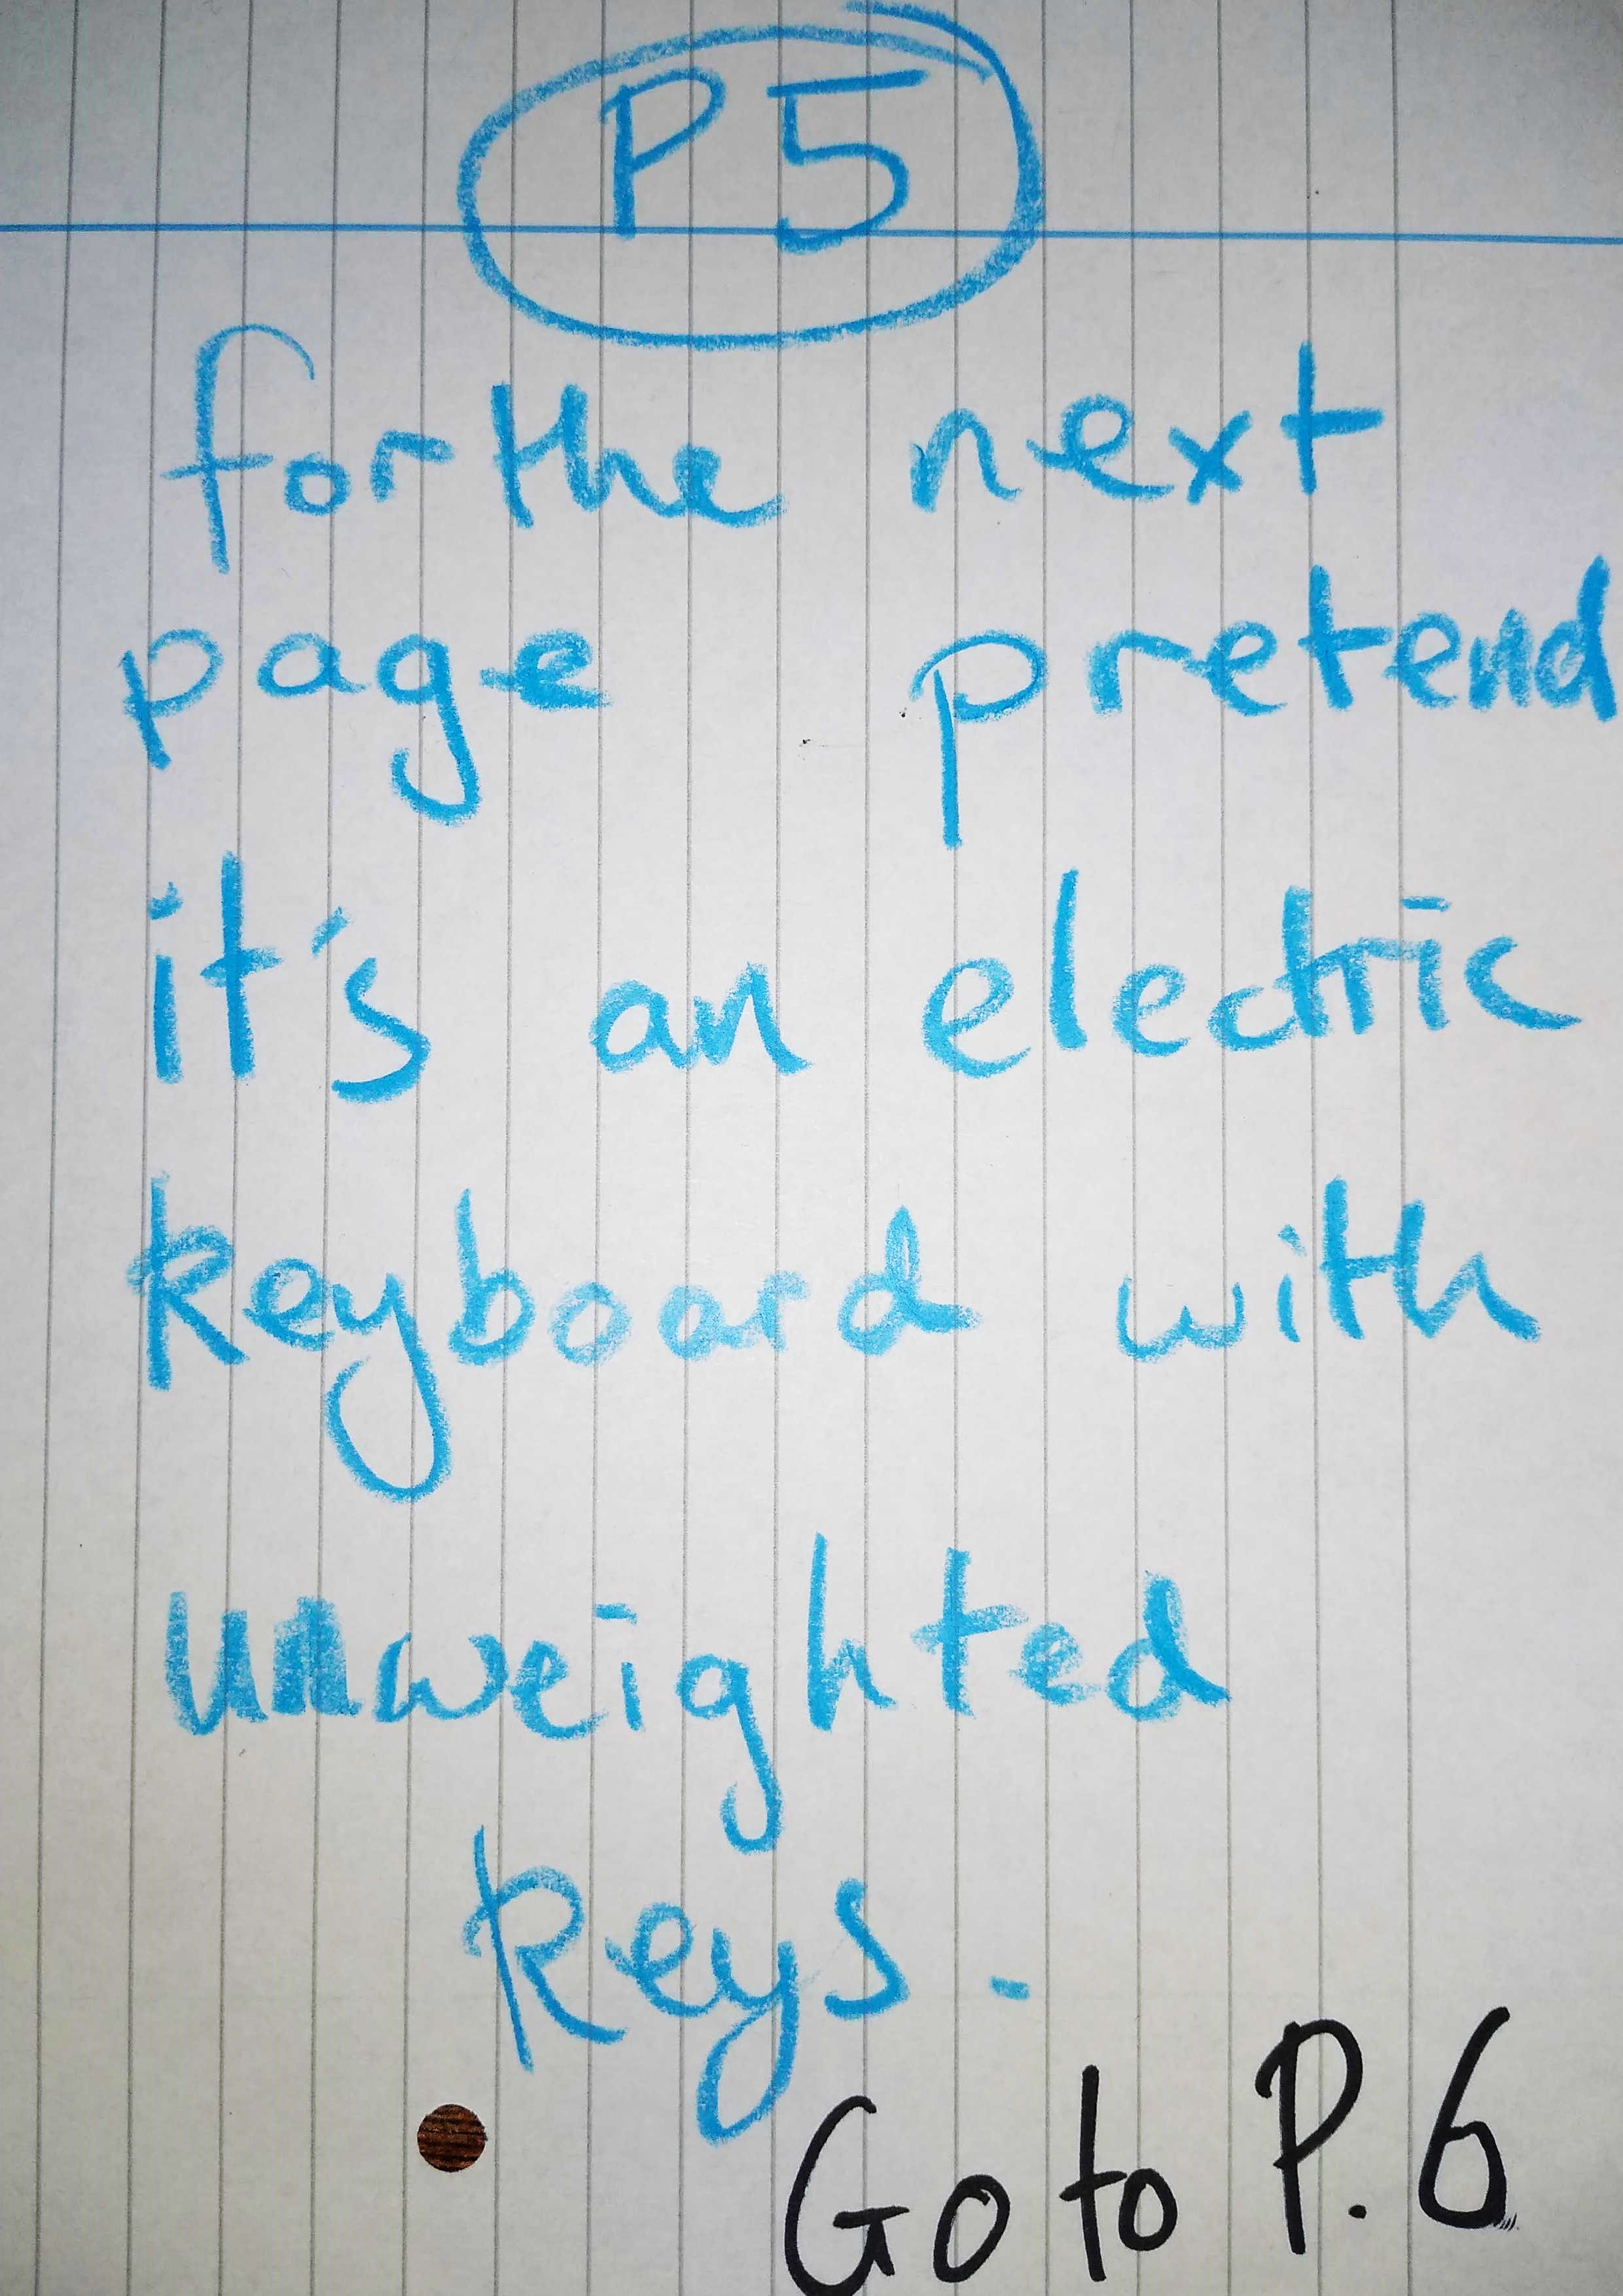 P5
for the next
page pretend
it's an electric
keyboard with
unweighted
keys.
Go to P. 6